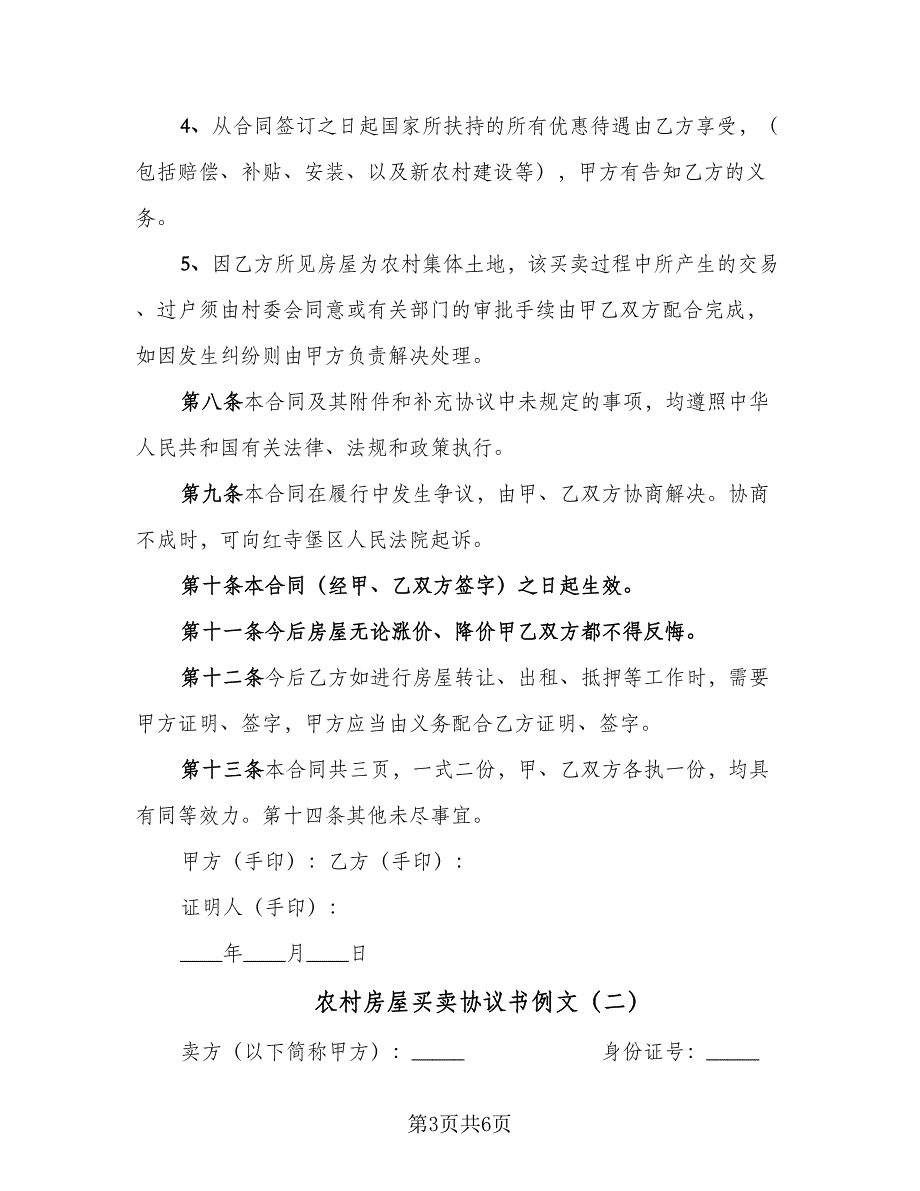 4、从合同签订之日起国家所扶持的所有优惠待遇由乙方享受，（
包括赔偿、补贴、安装、以及新农村建设等），甲方有告知乙方的义
务。
5、因乙方所见房屋为农村集体土地，该买卖过程中所产生的交易
、过户须由村委会同意或有关部门的审批手续由甲乙双方配合完成，
如因发生纠纷则由甲方负责解决处理。
第八条本合同及其附件和补充协议中未规定的事项，均遵照中华
人民共和国有关法律、法规和政策执行。
第九条本合同在履行中发生争议，由甲、乙双方协商解决。协商
不成时，可向红寺堡区人民法院起诉。
第十条本合同（经甲、乙双方签字）之日起生效。
第十一条今后房屋无论涨价、降价甲乙双方都不得反悔。
第十二条今后乙方如进行房屋转让、出租、抵押等工作时，需要
甲方证明、签字，甲方应当由义务配合乙方证明、签字。
第十三条本合同共三页，一式二份，甲、乙双方各执一份，均具
有同等效力。第十四条其他未尽事宜。
甲方（手印）：乙方（手印）：
证明人（手印）：
____年____月____日
农村房屋买卖协议书例文（二）
卖方（以下简称甲方）：_____ 身份证号：_____
第3页共6页